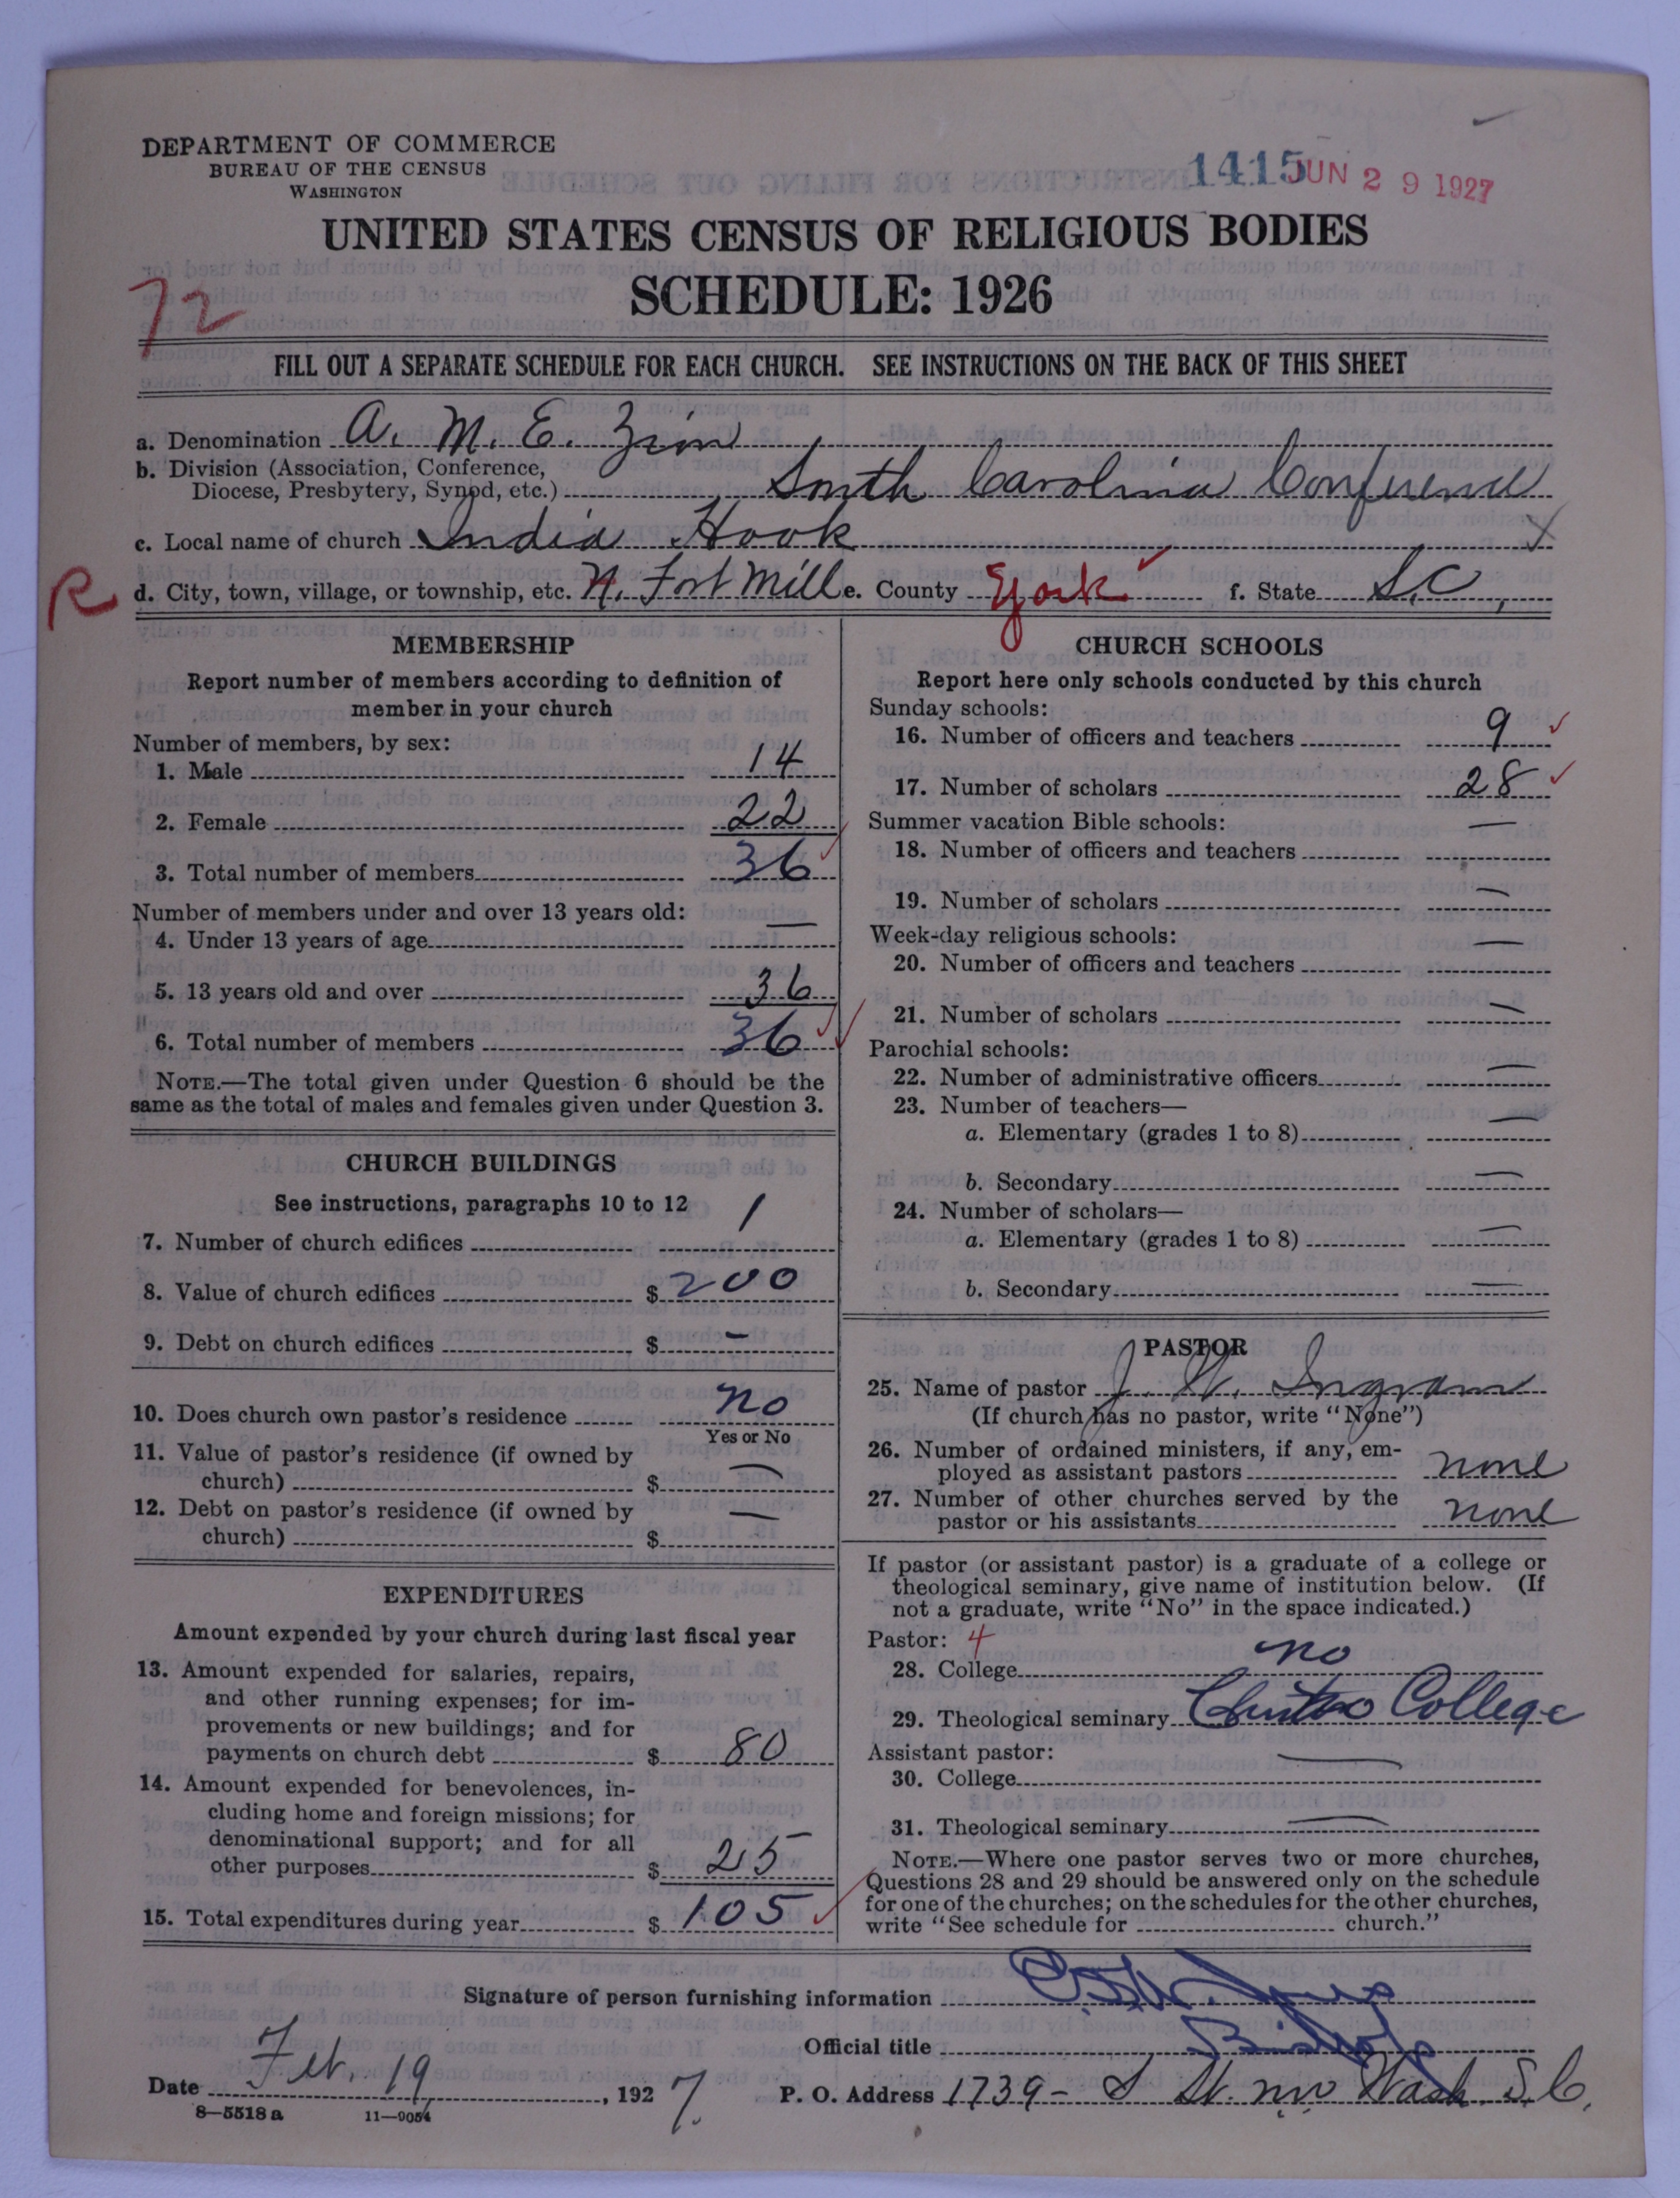 DEPARTMENT OF COMMERCE
BUREAU OF THE CENSUS
WASHINGTON
1415 JUN 29 1927
UNITED STATES CENSUS OF RELIGIOUS BODIES
SCHEDULE: 1926
72
FILL OUT A SEPARATE SCHEDULE FOR EACH CHURCH. SEE INSTRUCTIONS ON THE BACK OF THIS SHEET
a. Denomination A. M. E. Zion
b. Division (Association, Conference,
Diocese, Presbytery, Synod, etc.) South Carolina Conference
c. Local name of church India Hook
R d. City, town, village, or township, etc. N. Fort Mill e. County York f. State S.C.
MEMBERSHIP
Report number of members according to definition of
member in your church
Number of members, by sex:
1. Male 14
2. Female 22
3. Total number of members 36
Number of members under and over 13 years old:
4. Under 13 years of age —
5. 13 years old and over 36
6. Total number of members 36
NOTE.—The total given under Question 6 should be the
same as the total of males and females given under Question 3.
CHURCH BUILDINGS
See instructions, paragraphs 10 to 12
7. Number of church edifices 1
8. Value of church edifices $ 200
9. Debt on church edifices $ —
10. Does church own pastor's residence no
Yes or No
11. Value of pastor's residence (if owned by
church) $ —
12. Debt on pastor's residence (if owned by
church) $ —
EXPENDITURES
Amount expended by your church during last fiscal year
13. Amount expended for salaries, repairs,
and other running expenses; for im-
provements or new buildings; and for
payments on church debt $ 80
14. Amount expended for benevolences, in-
cluding home and foreign missions; for
denominational support; and for all
other purposes $ 25
15. Total expenditures during year $ 105
CHURCH SCHOOLS
Report here only schools conducted by this church
Sunday schools:
16. Number of officers and teachers 9
17. Number of scholars 28
Summer vacation Bible schools:
18. Number of officers and teachers —
19. Number of scholars —
Week-day religious schools:
20. Number of officers and teachers —
21. Number of scholars —
Parochial schools:
22. Number of administrative officers —
23. Number of teachers—
a. Elementary (grades 1 to 8) —
b. Secondary —
24. Number of scholars—
a. Elementary (grades 1 to 8) —
b. Secondary —
PASTOR
25. Name of pastor J. W. Ingram
(If church has no pastor, write "None")
26. Number of ordained ministers, if any, em-
ployed as assistant pastors none
27. Number of other churches served by the
pastor or his assistants none
If pastor (or assistant pastor) is a graduate of a college or
theological seminary, give name of institution below. (If
not a graduate, write "No" in the space indicated.)
Pastor: 4
28. College no
29. Theological seminary Clinton College
Assistant pastor:
30. College —
31. Theological seminary —
NOTE.—Where one pastor serves two or more churches,
Questions 28 and 29 should be answered only on the schedule
for one of the churches; on the schedules for the other churches,
write "See schedule for church."
Signature of person furnishing information
Official title Bishop
Date Feb. 19, 1927. P. O. Address 1739 - S St. nw Wash. D.C.
8—5518a 11—9054